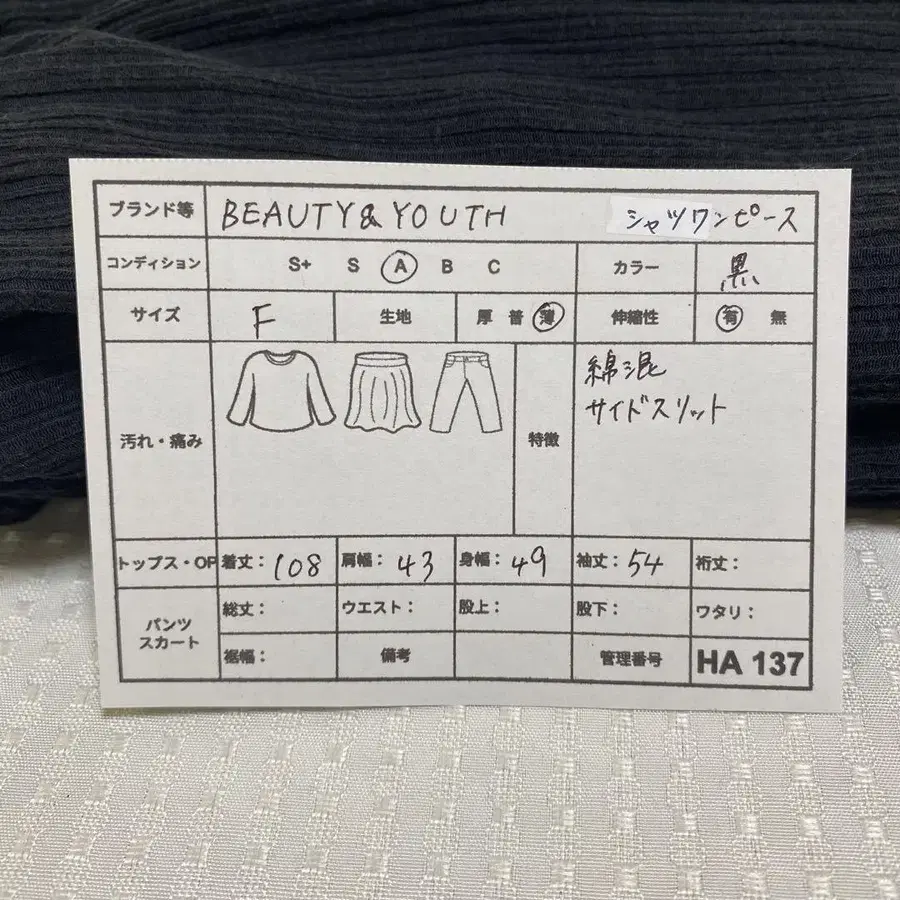 ブランド等 BEAUTY&YOUTH シャツワンピース
コンディション S+ S A B C カラー 黒
サイズ F 生地 厚 普 薄 伸縮性 有 無
汚れ・痛み 特徴 綿混
サイドスリット
トップス・OP 着丈: 108 肩幅: 43 身幅: 49 袖丈: 54 裄丈:
パンツ スカート 総丈: ウエスト: 股上: 股下: ワタリ:
裾幅: 備考 管理番号 HA 137